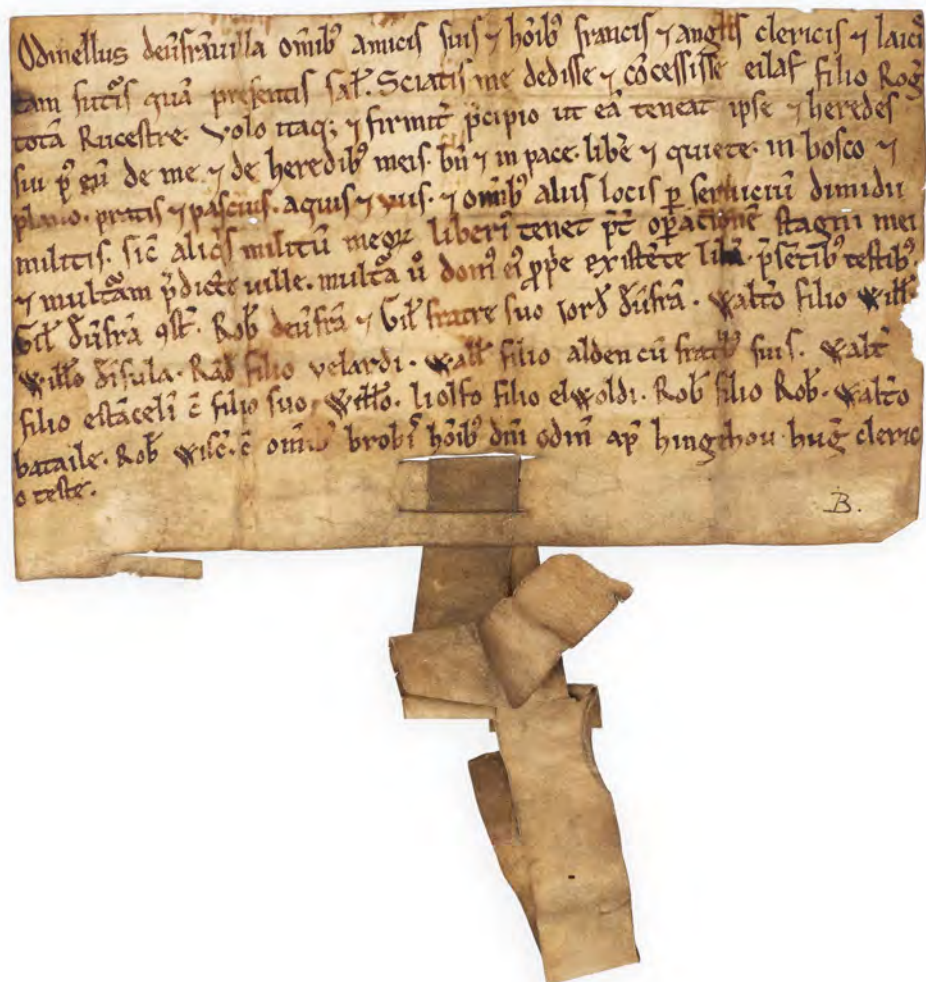 Odinellus deu̅fra̅uilla om̅ib; amicis suis ⁊ ho̅ib; francis ⁊ anglis clericis ⁊ laici
tam futuris qua̅ presentis sal̅. Sciatis me dedisse ⁊ co̅cessisse eilaf filio Rog̅
tota̅ Rucestre. Volo itaq; ⁊ firmit̅ p̅cipio ut ea̅ teneat ipse ⁊ heredes
sui p̅ eu̅ de me ⁊ de heredib; meis. bn̅ ⁊ in pace. lib̅e ⁊ quiete. in bosco ⁊
plano. pratis ⁊ pascuis. aquis ⁊ uiis. ⁊ om̅ib; aliis locis p̲ seruiciu̅ dimidii
militis. sic̅ aliq̅s militu̅ meoꝝ liberi̅ tenet p̅t̅ op̲acione̅ stagni mei
⁊ multuram p̅dicte uille. multura u̅ dom; ei; p̲p̅e existe̅te lib̅a. p̅se̅tib; testib;.
Gil̅ d̅u̅fra̅ ꝯst̅. Rob̅ deu̅fra̅ ⁊ Gil̅ fratre suo iord̅ d̅u̅fra̅. Walt̅o filio Will̅i
Will̅o d̅isula. Rad̅ filio velardi. Wall̅ filio alden cu̅ frat̅b; suis. Walt̅
filio esta̅celi̅ c̅ filio suo Will̅o. liolfo filio elwoldi. Rob̅ filio Rob̅. Walt̅o
bataile. Rob̅ Wisc̅. c̅ om̅ib; p̲bi̅s ho̅ib; dn̅i odin̅ ap̅ hinghou. hug̅ cleric
o teste.
B.